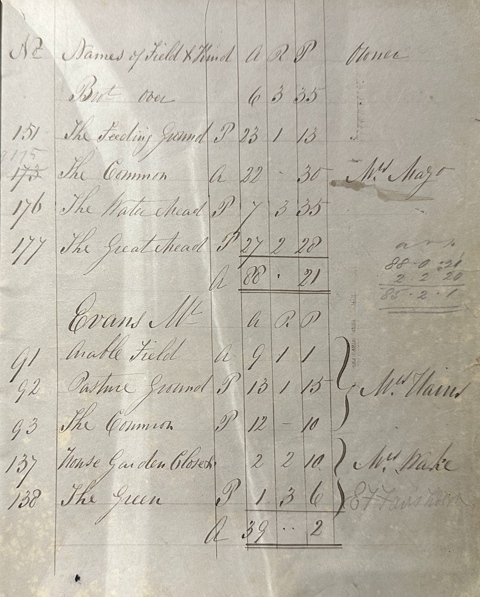 No Names of Field & Kind A R P Owner
Brot over 6 3 35
151 The Feeding Ground P 23 1 13
175
173 The Common A 22 - 30 Mrs Mayo
176 The Water Mead P 7 3 35
177 The Great Mead P 27 2 28
A 88 · 21
a r p
88-0-21
2 2 20
85-2-1
Evans Mt A R P
91 Arable Field A 9 1 1
92 Pasture Ground P 13 1 15 Mrs Hains
93 The Common P 12 - 10
137 House Garden Closes 2 2 10 Mrs Wake
138 The Green P 1 3 6
A 39 ·· 2